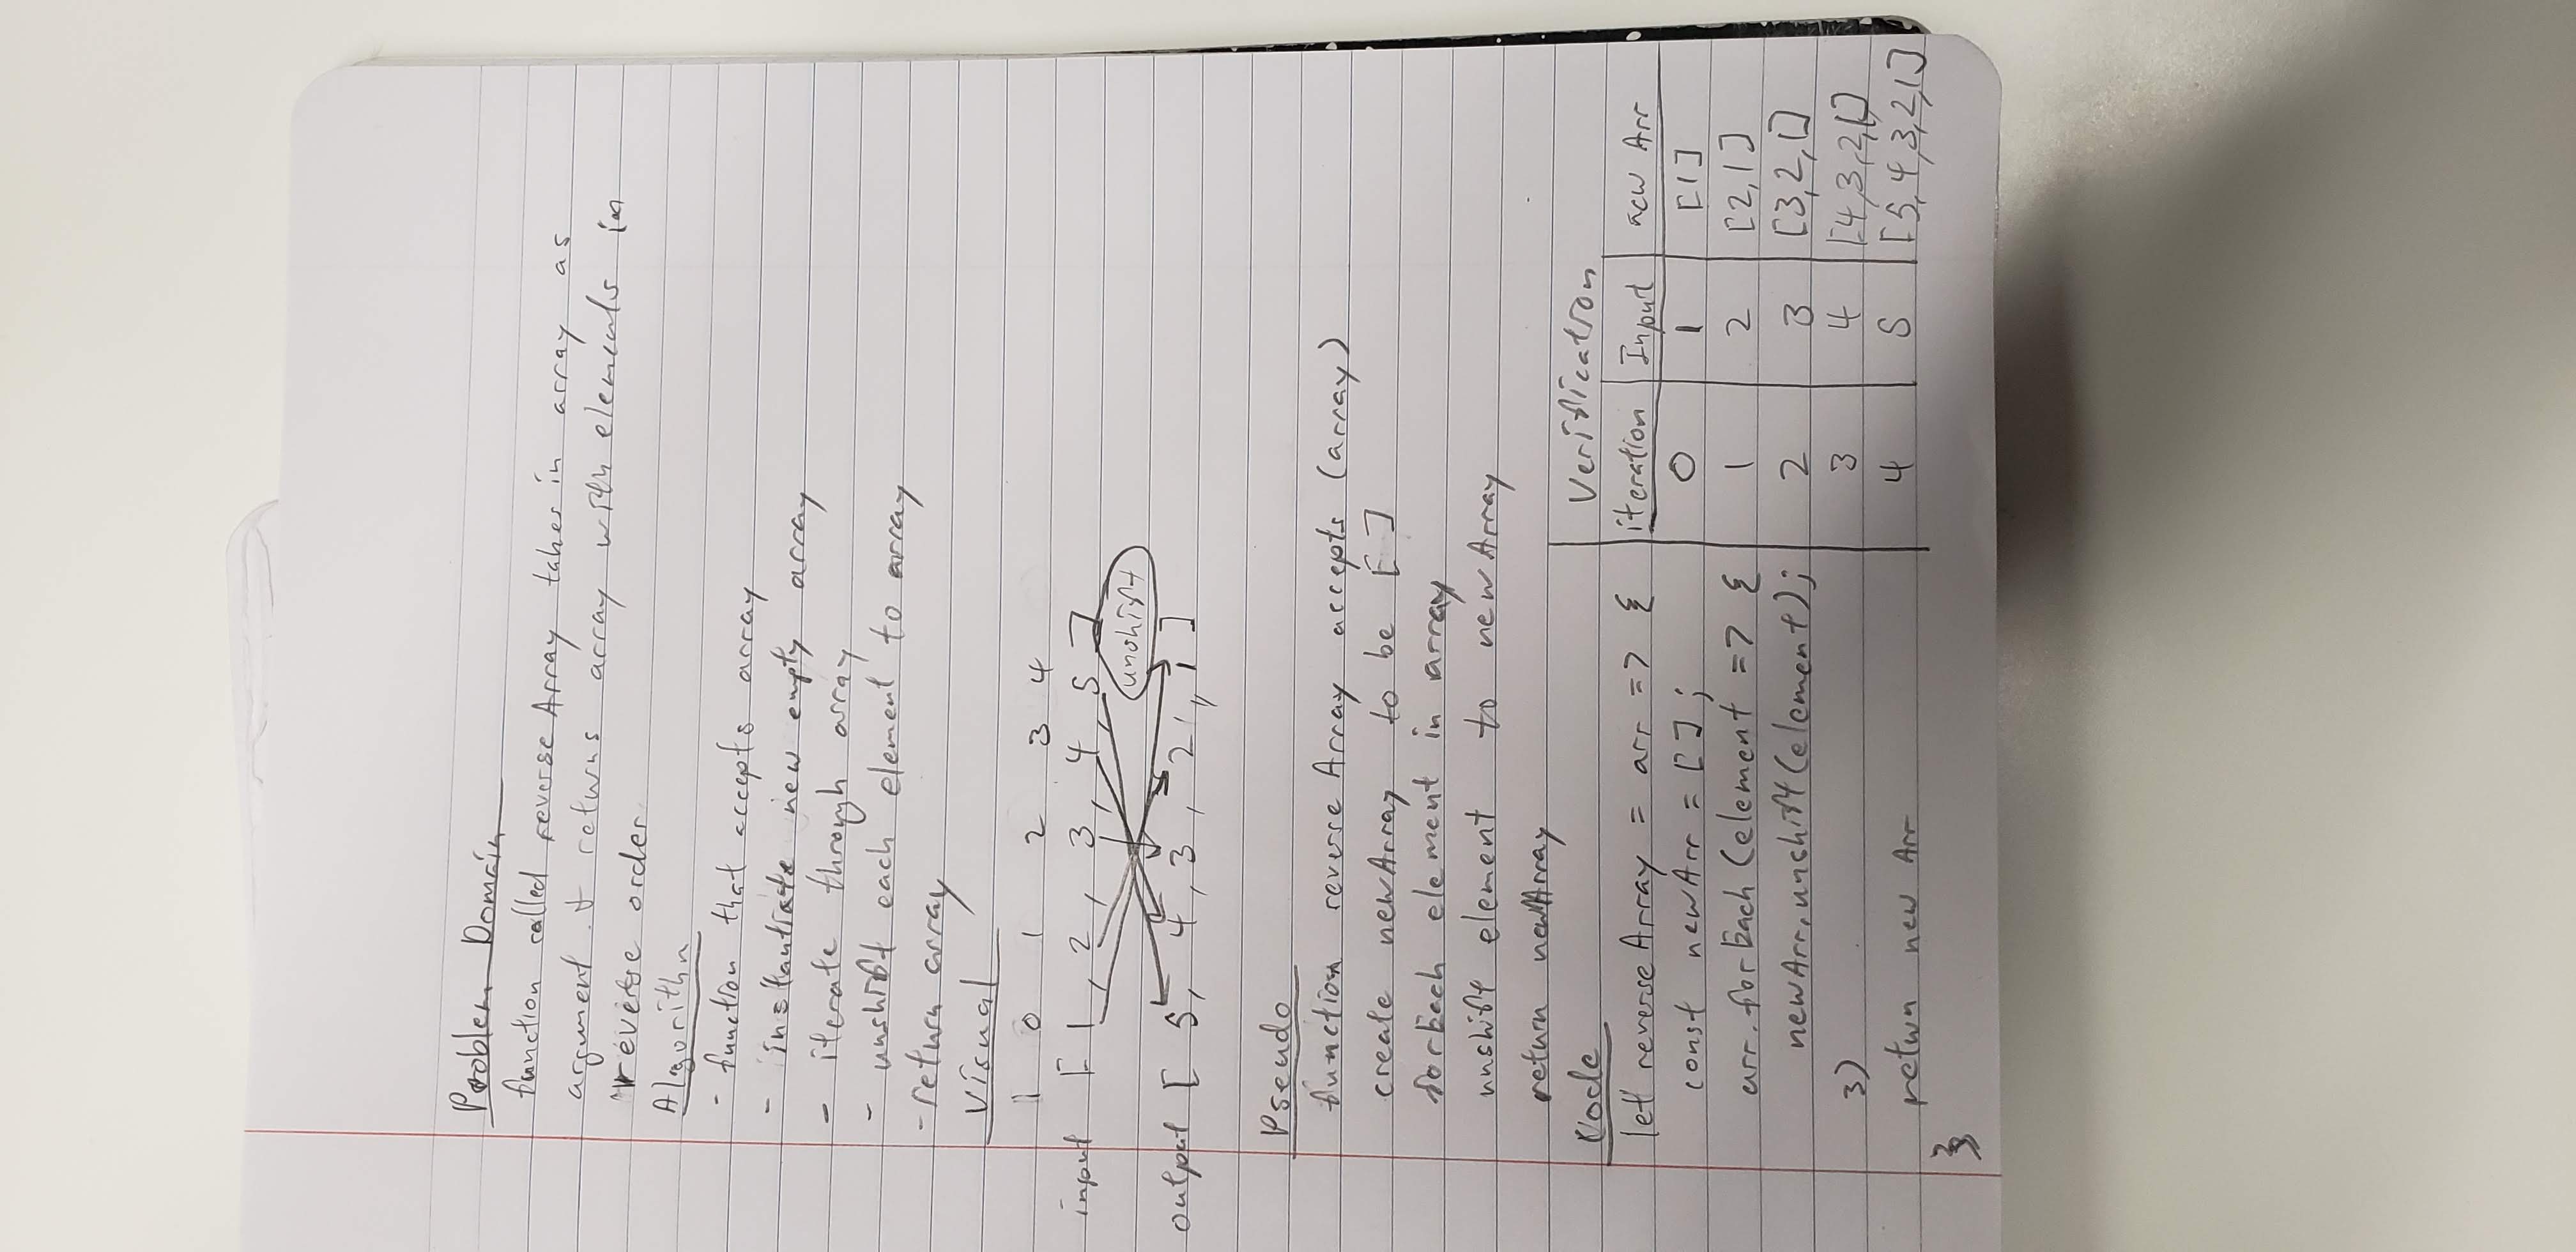 Problem Domain
function called reverse Array takes in array as
argument & returns array with elements in
reverse order
Algorithm
- function that accepts array
- instantiate new empty array
- iterate through array
- unshift each element to array
- return array
Visual
0 1 2 3 4
input [ 1 , 2 , 3 , 4 , 5 ]
unshift
output [ 5, 4 , 3 , 2 , 1 ]
Pseudo
function reverse Array accepts (array)
create newArray to be [ ]
for Each element in array
unshift element to new Array
return newArray
Code
let reverse Array = arr => {
const newArr = [ ] ;
arr. for Each (element => {
newArr.unshift (element) ;
})
return new Arr
}
Verification
iteration Input new Arr
0 1 [1]
1 2 [2,1]
2 3 [3,2,1]
3 4 [4,3,2,1]
4 5 [5,4,3,2,1]